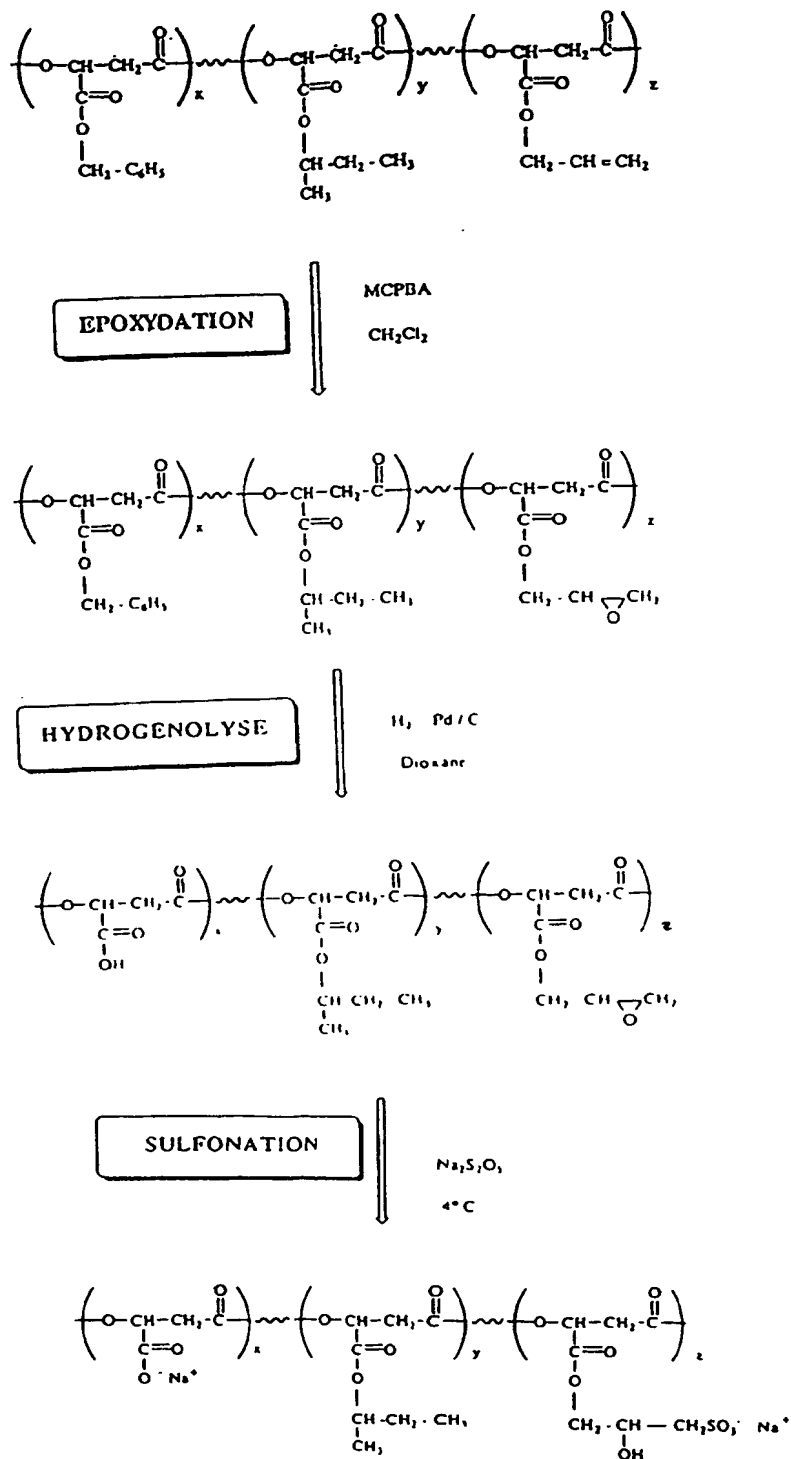 O-CH-CH₂-C x O-CH-CH₂-C y O-CH-CH₂-C z
O O O
C=O C=O C=O
O O O
CH₂-C₆H₅ CH-CH₂-CH₃ CH₂-CH=CH₂
CH₃
EPOXYDATION
MCPBA
CH₂Cl₂
O O O
O-CH-CH₂-C x O-CH-CH₂-C y O-CH-CH₂-C z
C=O C=O C=O
O O O
CH₂-C₆H₅ CH-CH₂-CH₃ CH₂-CH CH₂
CH₃ O
HYDROGENOLYSE
H₂ Pd/C
Dioxane
O O O
O-CH-CH₂-C O-CH-CH₂-C O-CH-CH₂-C z
C=O C=O C=O
OH O O
CH CH₂ CH₃ CH₂ CH CH₂
CH₃ O
SULFONATION
Na₂S₂O₅
4°C
O O O
O-CH-CH₂-C x O-CH-CH₂-C y O-CH-CH₂-C z
C=O C=O C=O
O⁻ Na⁺ O O
CH-CH₂-CH₃ CH₂-CH-CH₂SO₃⁻ Na⁺
CH₃ OH